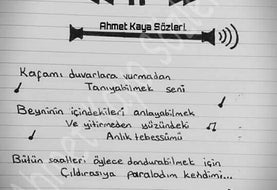 Ahmet Kaya Sözleri
Kafamı duvarlara vurmadan
Tanıyabilmek seni
Beyninin içindekileri anlayabilmek
Ve yitirmeden yüzündeki
Anlık tebessümü
Bütün saatleri öylece dondurabilmek için
Çıldırasıya paraladım kendimi...